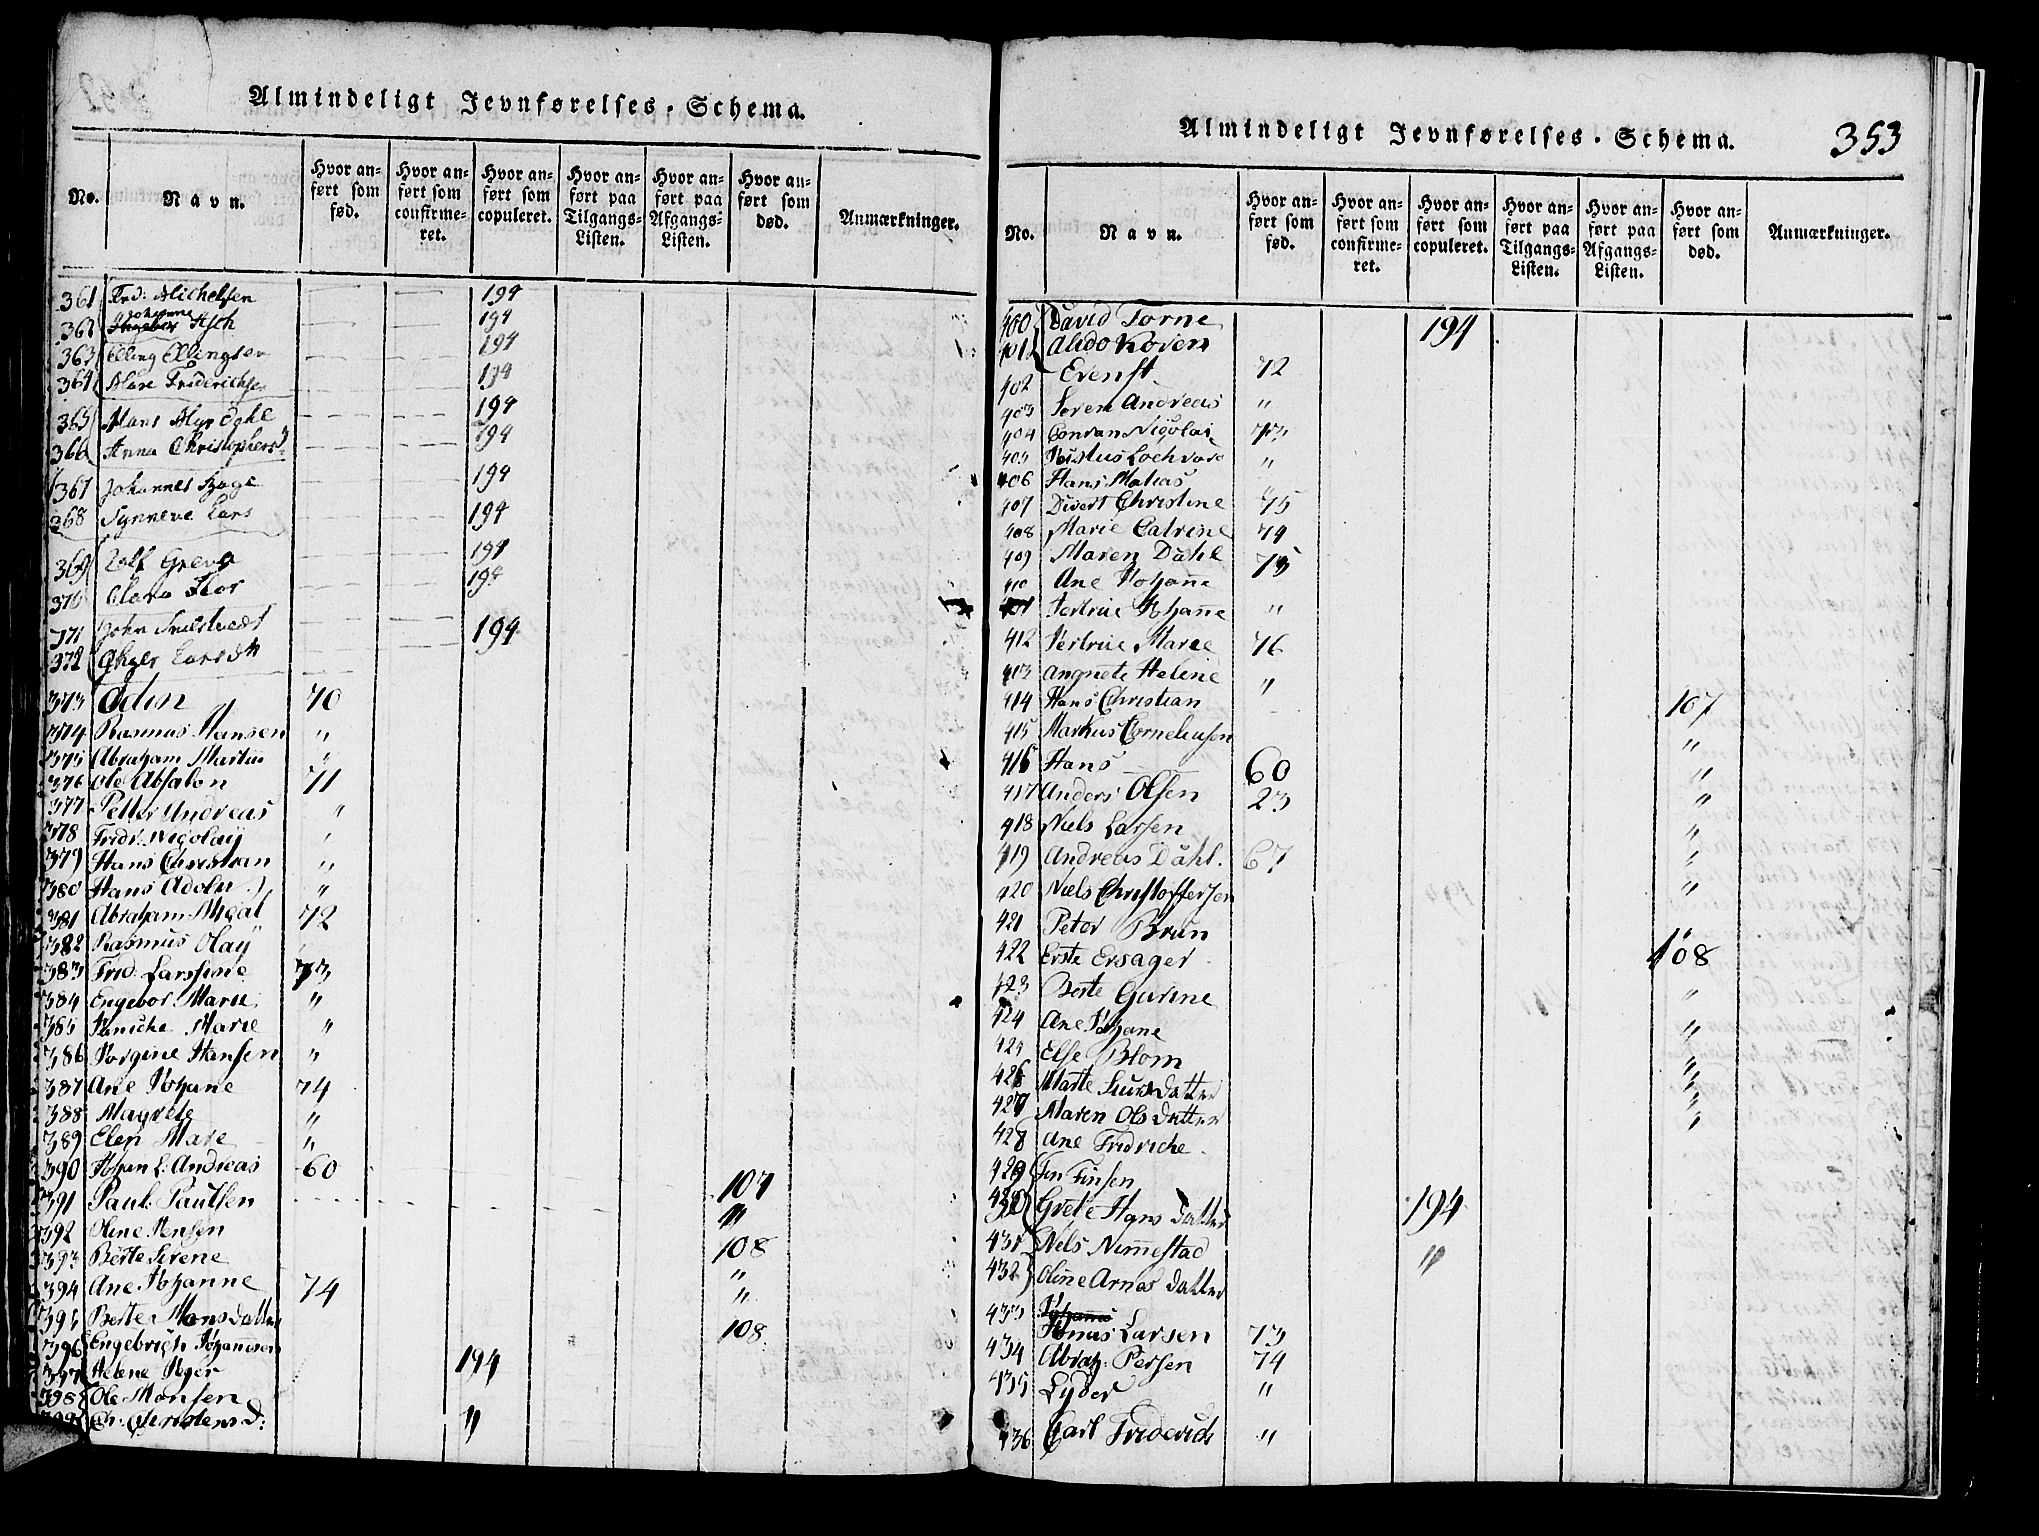 Almindeligt Jevnførelses-Schema.
No. Navn. Hvor anført som født. Hvor anført som confirmeret. Hvor anført som copuleret. Hvor anført paa Tilgangs-Listen. Hvor anført paa Afgangs-Listen. Hvor anført som død. Anmærkninger.
361 Frd: Michelsen 194
362 Johanne Asch 194
363 Elling Ellingsen 194
364 Mare Friderichse 194
365 Hans Myrdahl 194
366 Anna Christophersd 194
367 Johannes 194
368 Synneve Lars 194
369 194
370 Clara 194
371 John 194
372 Larsd
373 Odin 70
374 Rasmus Hansen "
375 Abraham Martin "
376 Ole Absalon 71
377 Petter Andreas "
378 Fridr: Nigolay "
379 Hans Christian "
380 Hans Adolu "
381 Abraham Migal 72
382 Rasmus Olay "
383 Frid: Larssine 73
384 Engebor Marie "
385 Marie "
386 Hansen "
387 Ane Johane 74
388 Magrete "
389 Elen Mare "
390 Johan L: Andreas 60
391 Paul: Paulsen 107
392 Oline Jensen "
393 Berte Serene 108
394 Ane Johanne 74 "
395 Berte Monsdatter "
396 Engebrigh Johannesen 108
397 Helene 194
398 Ole Monsen
399 Ch: Christens D: "
Almindeligt Jevnførelses-Schema. 353
No. Navn. Hvor anført som født. Hvor anført som confirmeret. Hvor anført som copuleret. Hvor anført paa Tilgangs-Listen. Hvor anført paa Afgangs-Listen. Hvor anført som død. Anmærkninger.
400 David Torne 194
401 Koren
402 Evenst 72
403 Soren Andreas "
404 Conran Nigolai 73
405 "
406 Hans Matias "
407 Divert Christine 75
408 Marie Catrine 74
409 Maren Dahl 75
410 Ane Johanne
411 Johanne "
412 Marie 76
413 Angnete Heline
414 Hans Christian " 107
415 Markus Corneliusen "
416 Hans 60 "
417 Anders Olsen 23 "
418 Niels Larsen "
419 Andreas Dahl. 67 "
420 Niels Christoffersen "
421 Peter Brun "
422 Erste Ersager 108
423 Berte Gurine "
424 Ane Johane "
425 Else Blom "
426 Marte Datter "
427 Maren Ols Datter "
428 Ane Fridriche "
429 Jon Finsen
430 Grete Hans Datter 194
431 Nels Nimmestad "
432 Oline Arnes Datter
433 Jonas Larsen 73
434 Abrah: Persen 74
435 Lyder "
436 Carl Friderich "